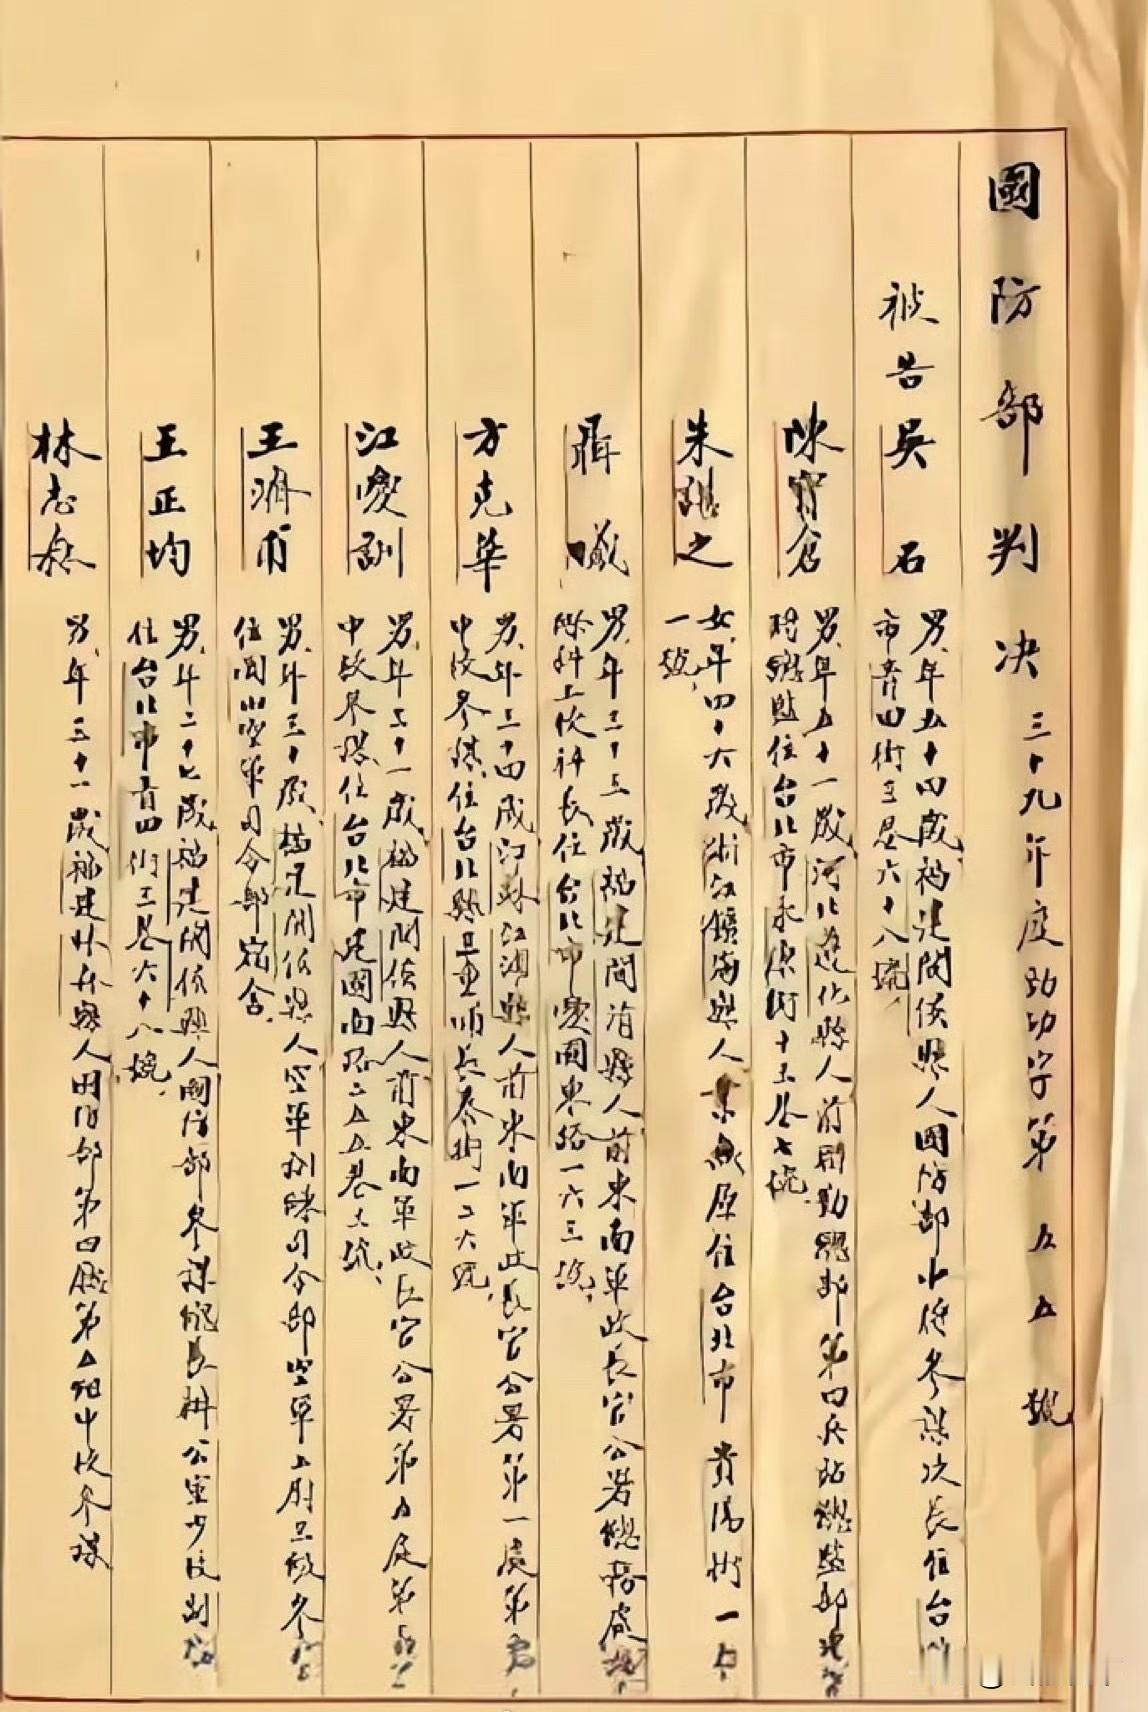 國防部判決 三十九年度劲功字第五五號
被告吳石 男、年五十四歲福建閩侯縣人國防部中將參謀次長住台北
市青田街三巷六十八號、
陳寶倉 男、年五十一歲河北遵化縣人前聯勤總部第四兵站總監部
總監住台北市永康街十三巷七號、
朱諶之 女、年四十六歲浙江鎮海縣人 原住台北市貴陽街一
一號、
聶曦 男、年三十三歲福建閩清縣人前東南軍政長官公署總務處
際科上校科長住台北市愛國東路一六三號、
方克華 男、年三十四歲江蘇江浦縣人前東南軍政長官公署第一處第
中校參謀、住台北縣 一二六號、
江愛訓 男、年三十一歲福建閩侯縣人前東南軍政長官公署第五處第
中校參謀住台北市 二五五巷 號、
王濟甫 男、年三十歲福建閩侯縣人空軍訓練司令部空軍上尉 參
住岡山空軍司令部宿舍、
王正均 男、年二十七歲福建閩侯縣人國防部參謀總長辦公室少校副
住台北市青田街三巷六十八號、
林志森 男、年三十一歲福建林森縣人國防部第四廳第五組中校參謀